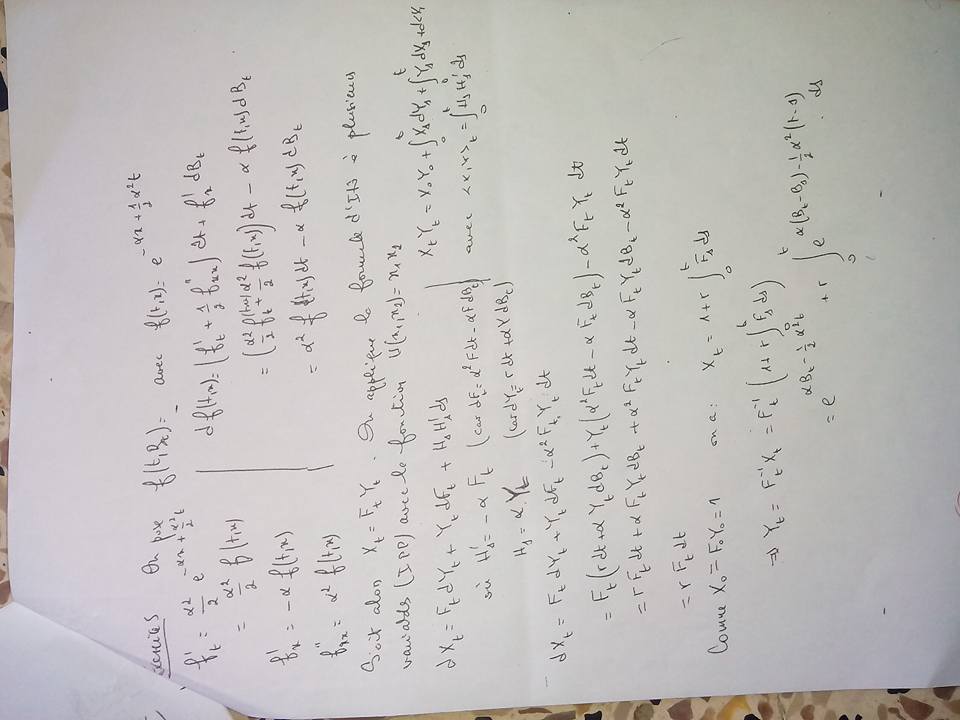 On pose f(t,Bt)= avec f(t,x)= e^{-αx + ½α²t}
f't = α²/2 e^{-αx + α²/2 t}
= α²/2 f(t,x)
f'x = -α f(t,x)
f''xx = α² f(t,x)
df(t,x)= (f't + ½ f''xx) dt + f'x dBt
= (α²/2 f(t,x) + α²/2 f(t,x)) dt - α f(t,x) dBt
= α² f(t,x) dt - α f(t,x) dBt
Soit alors Xt = Ft Yt. On applique la formule d'Itô à plusieurs
variables (IPP) avec la fonction U(x1,x2) = x1 x2
dXt = Ft dYt + Yt dFt + Hs H's ds
où H's = -α Ft (car dFt = α² F dt - αF dBt)
Hs = α Yt (car dYt = r dt + αY dBt)
Xt Yt = X0 Y0 + ∫₀ᵗ Xs dYs + ∫₀ᵗ Ys dXs + d<X,
avec <X,Y>t = ∫₀ᵗ Hs H's ds
dXt = Ft dYt + Yt dFt - α² Ft Yt dt
= Ft (r dt + α Yt dBt) + Yt (α² Ft dt - α Ft dBt) - α² Ft Yt dt
= r Ft dt + α Ft Yt dBt + α² Ft Yt dt - α Ft Yt dBt - α² Ft Yt dt
= r Ft dt
Comme X0 = F0 Y0 = 1 on a : Xt = 1 + r ∫₀ᵗ Fs ds
⇒ Yt = Ft⁻¹ Xt = Ft⁻¹ (1 + r ∫₀ᵗ Fs ds)
= e^{αBt - ½α²t} + r ∫₀ᵗ e^{α(Bt - Bs) - ½α²(t-s)} ds